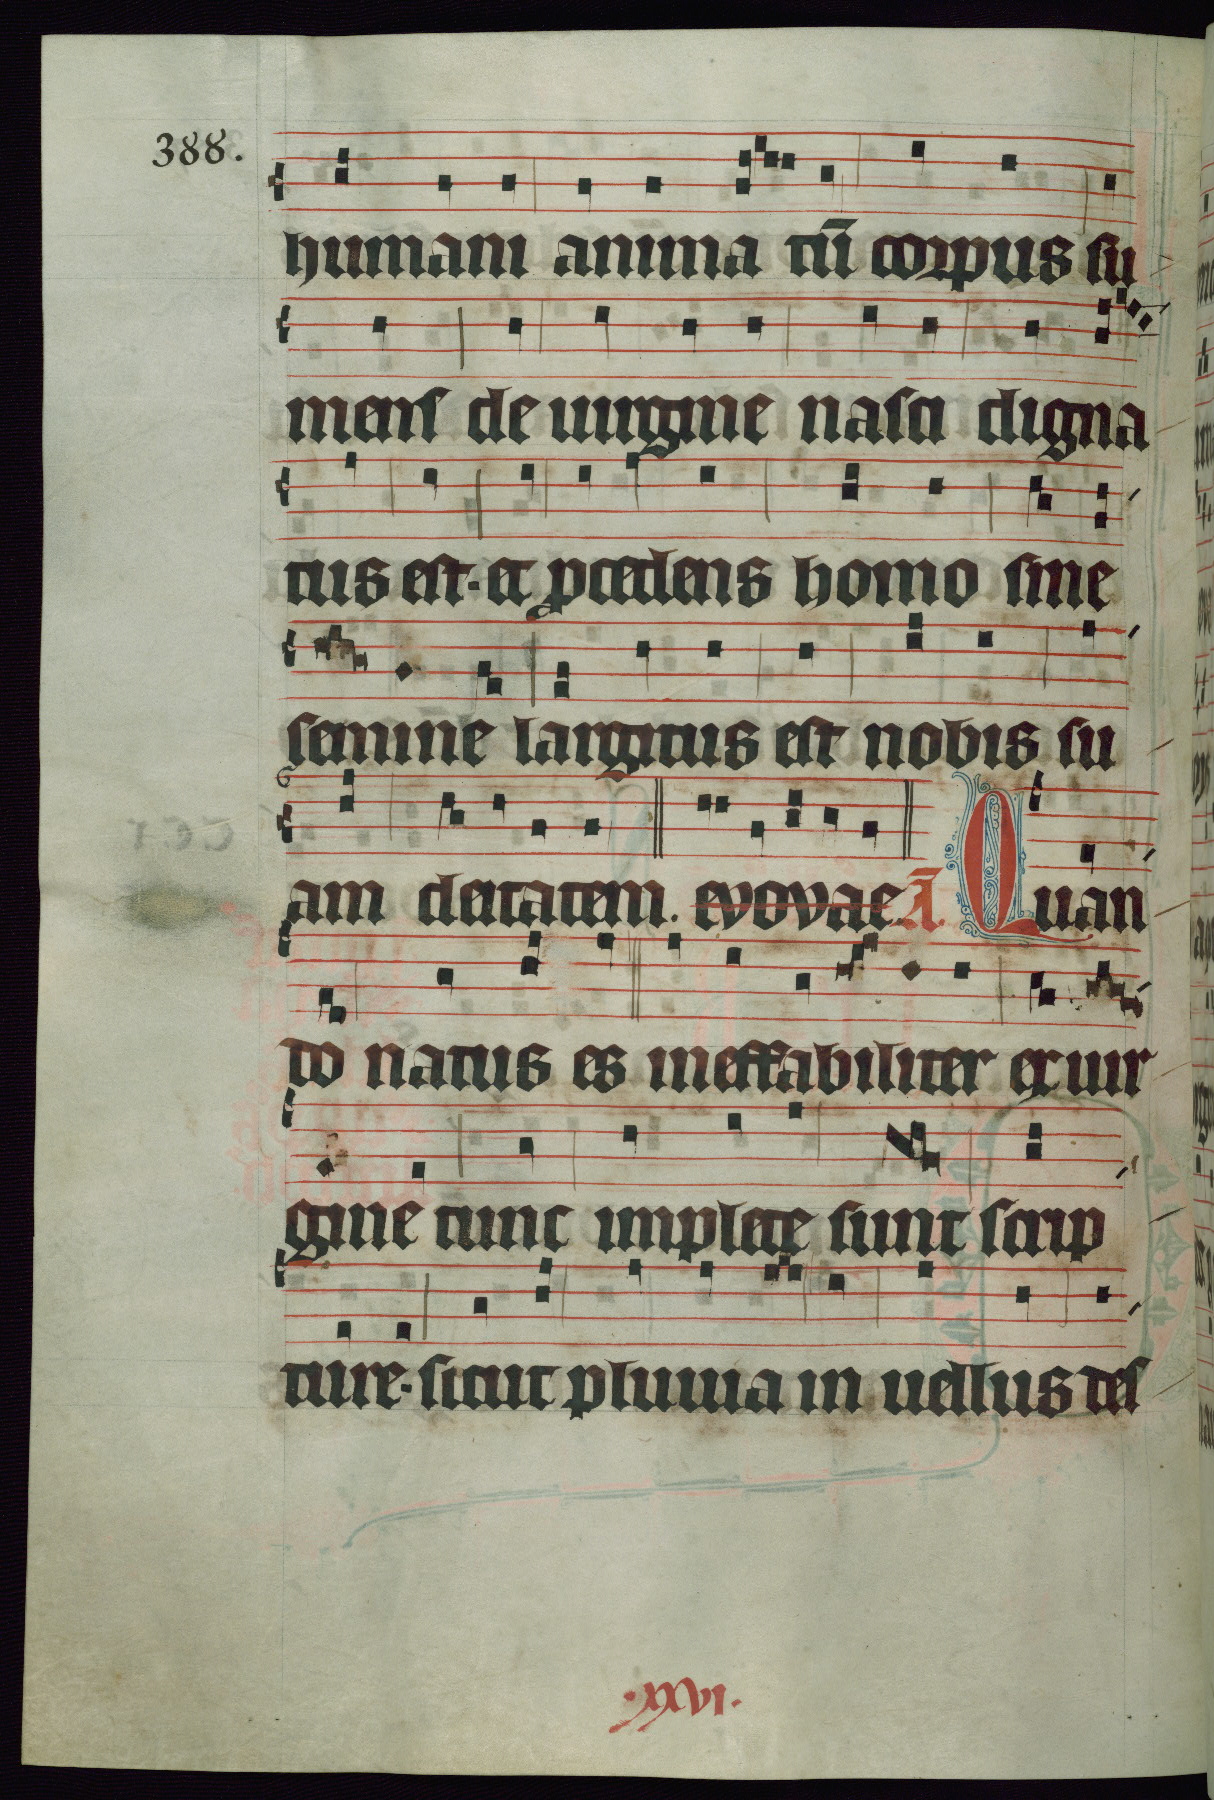 388.
humani anima tū corpus su
mens de uirgine nasci digna
tus est. et pcedens homo sine
semine largitus est nobis su
am deitatem. evovae Ā. Quan
do natus es ineffabiliter ex uir
gine tunc implete sunt scrip
ture. sicut pluuia in uellus des
.xxvi.